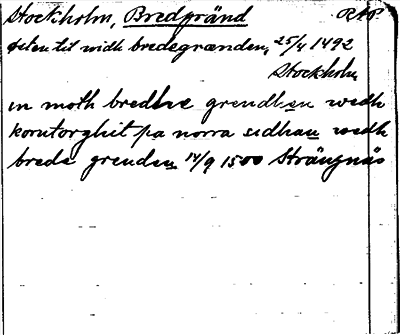 Stockholm, Bredgränd RAP
til widh bredegrænden, 25/4 1492
Stockholm
in moth bredhe grendhen widh
korntorghit pa norra sidhan widh
brede grenden 14/9 1500 Strängnäs